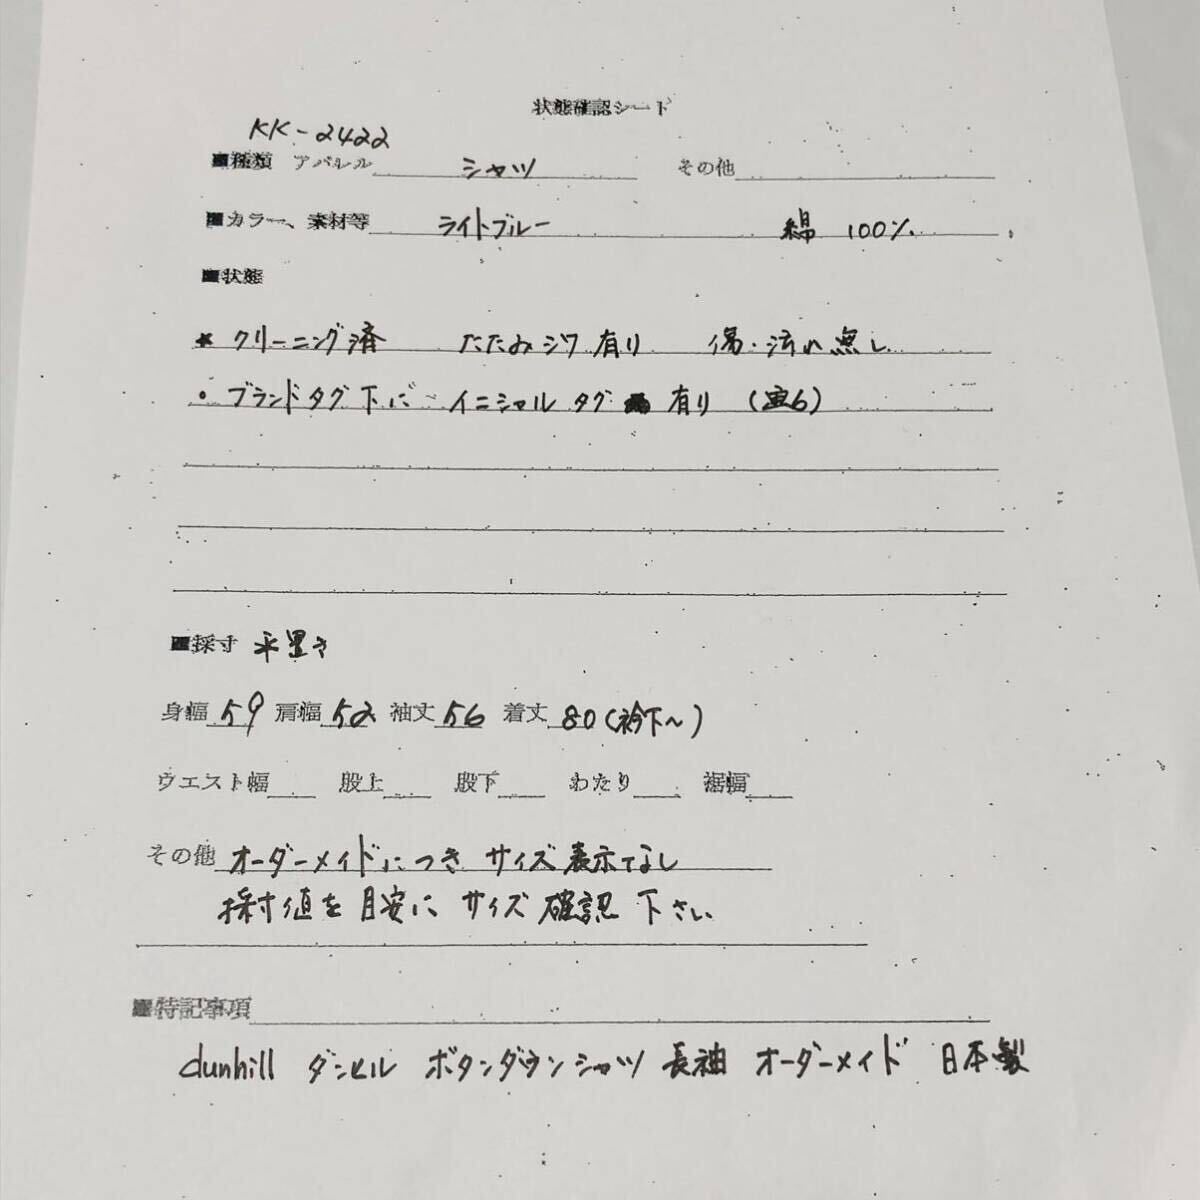 状態確認シート
KK-2422
■種類 アパレル シャツ その他
■カラー、素材等 ライトブルー 綿 100%
■状態
* クリーニング済 たたみジワ有り 傷・汚れ無し
・ブランドタグ下に イニシャルタグ 有り (写6)
■採寸 平置き
身幅 59 肩幅 52 袖丈 56 着丈 80(衿下~)
ウエスト幅 股上 股下 わたり 裾幅
その他 オーダーメイドにつき サイズ表示なし
採寸値を目安に サイズ確認下さい
■特記事項
dunhill ダンヒル ボタンダウンシャツ 長袖 オーダーメイド 日本製